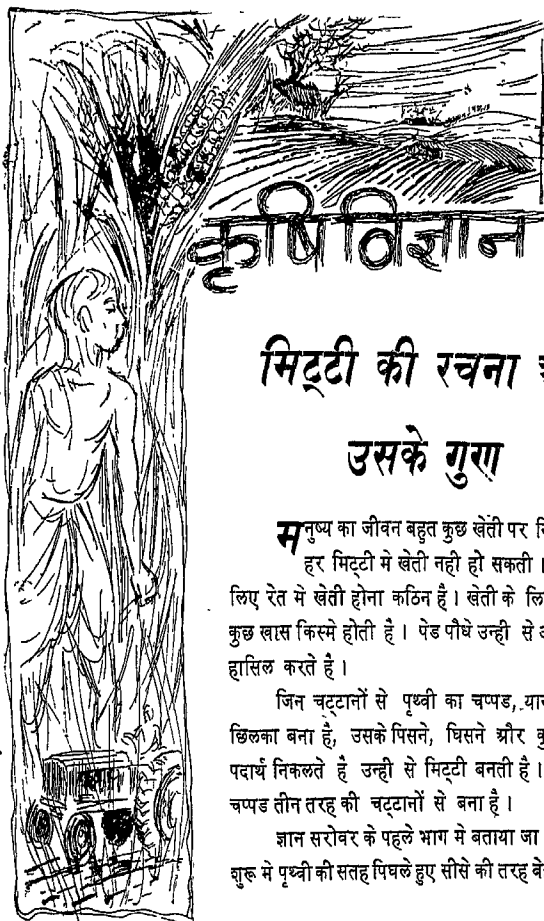 कृषि विज्ञान
मिट्टी की रचना
उसके गुण
मनुष्य का जीवन बहुत कुछ खेती पर
हर मिट्टी मे खेती नही हो सकती ।
लिए रेत मे खेती होना कठिन है । खेती के
कुछ खास किस्मे होती है । पेड पौधे उन्ही से
हासिल करते है ।
जिन चट्टानों से पृथ्वी का चप्पड,
छिलका बना है, उसके पिसने, घिसने और
पदार्थ निकलते है उन्ही से मिट्टी बनती है ।
चप्पड तीन तरह की चट्टानों से बना है ।
ज्ञान सरोवर के पहले भाग मे बताया जा
शुरू मे पृथ्वी की सतह पिघले हुए सीसे की तरह